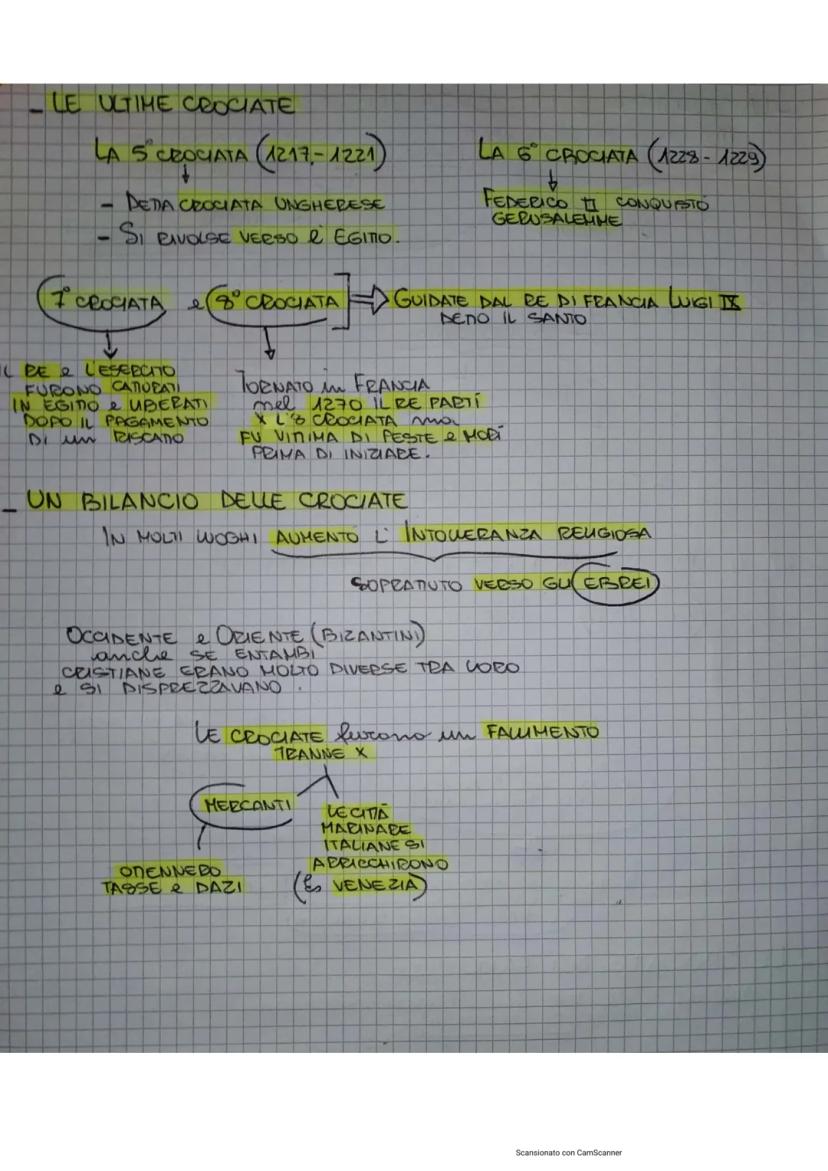 - LE ULTIME CROCIATE
LA 5° CROCIATA (1217-1221)
- DETTA CROCIATA UNGHERESE
- SI RIVOLSE VERSO L'EGITTO.
LA 6° CROCIATA (1228-1229)
FEDERICO II CONQUISTÒ
GERUSALEMME
7° CROCIATA e 8° CROCIATA ⇒ GUIDATE DAL RE DI FRANCIA LUIGI IX
DETTO IL SANTO
IL RE e L'ESERCITO
FURONO CATTURATI
IN EGITTO e LIBERATI
DOPO IL PAGAMENTO
DI un RISCATTO
TORNATO in FRANCIA
nel 1270 IL RE PARTÍ
X L'8 CROCIATA ma
FU VITTIMA DI PESTE e MORÍ
PRIMA DI INIZIARE.
- UN BILANCIO DELLE CROCIATE
IN MOLTI LUOGHI AUMENTÒ L'INTOLLERANZA RELIGIOSA
SOPRATTUTTO VERSO GLI EBREI
OCCIDENTE e ORIENTE (BIZANTINI)
anche SE ENTAMBI
CRISTIANE ERANO MOLTO DIVERSE TRA LORO
e SI DISPREZZAVANO.
LE CROCIATE furono un FALLIMENTO
TRANNE X
MERCANTI
OTTENNERO
TASSE e DAZI
LE CITTÀ
MARINARE
ITALIANE SI
ARRICCHIRONO
(Es VENEZIA)
Scansionato con CamScanner